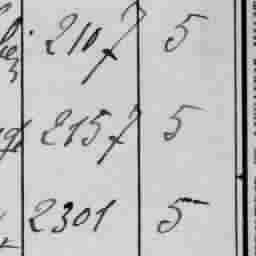 2107 5
2157 5
2301 5